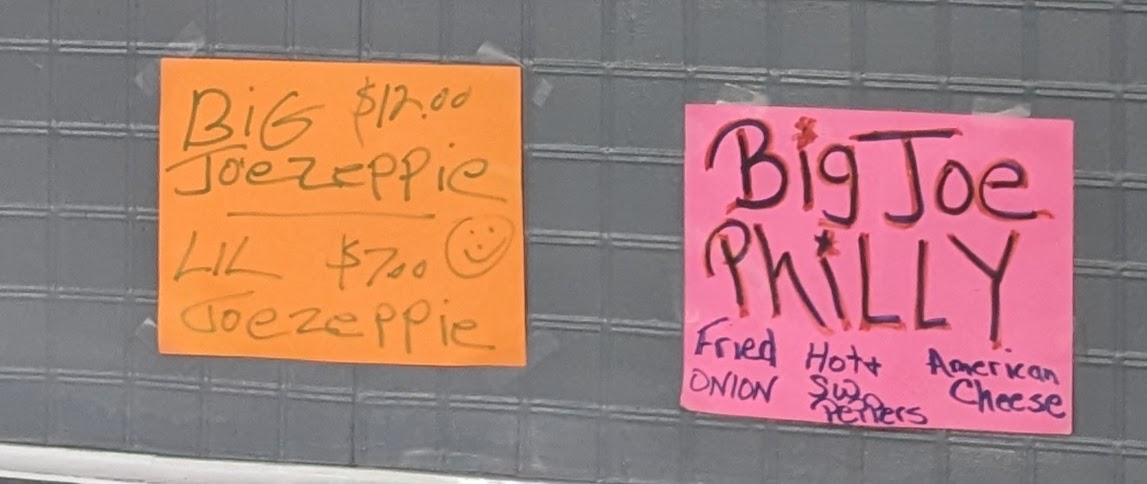 BiG $12.00
Joezeppie
LIL $7.00
Joezeppie
Big Joe
PhiLLY
Fried Hot + American
ONION Sw. Cheese
Peppers